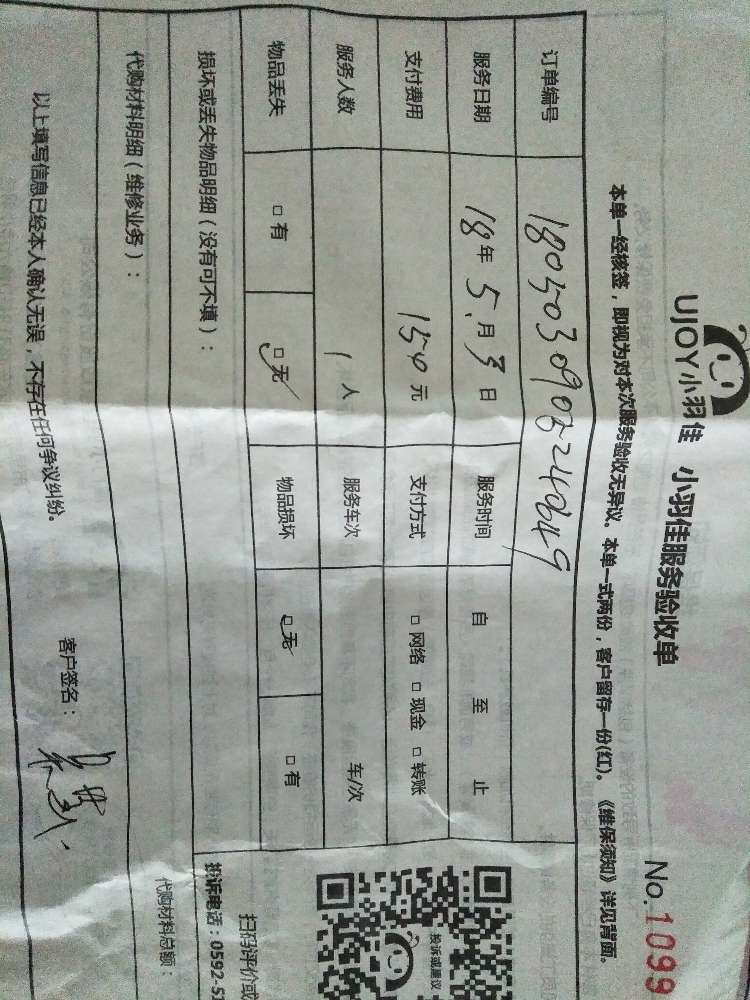 UJOY小羽佳 小羽佳服务验收单 No.1099
本单一经核签，即视为对本次服务验收无异议。本单一式两份，客户留存一份(红)。《维保须知》详见背面。
订单编号
服务日期 18年5月3日 服务时间 自 至 止
支付费用 150元 支付方式 □网络 □现金 □转账
服务人数 1人 服务车次 车/次
物品丢失 □有 □无 物品损坏 □无 □有
损坏或丢失物品明细（没有可不填）：
代购材料明细（维修业务）：
代购材料总额：
以上填写信息已经本人确认无误，不存在任何争议纠纷。
客户签名：
投诉或建议
扫码评价或
投诉电话：0592-5